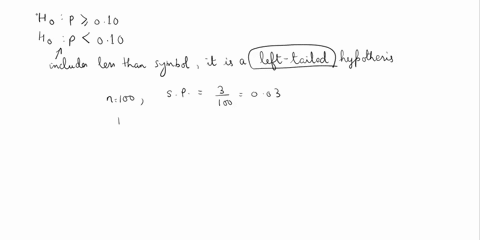 H₀ : p ⩾ 0.10
H₀ : p < 0.10
includes less than symbol, it is a left-tailed hypothesis
n=100, s.p. = 3/100 = 0.03